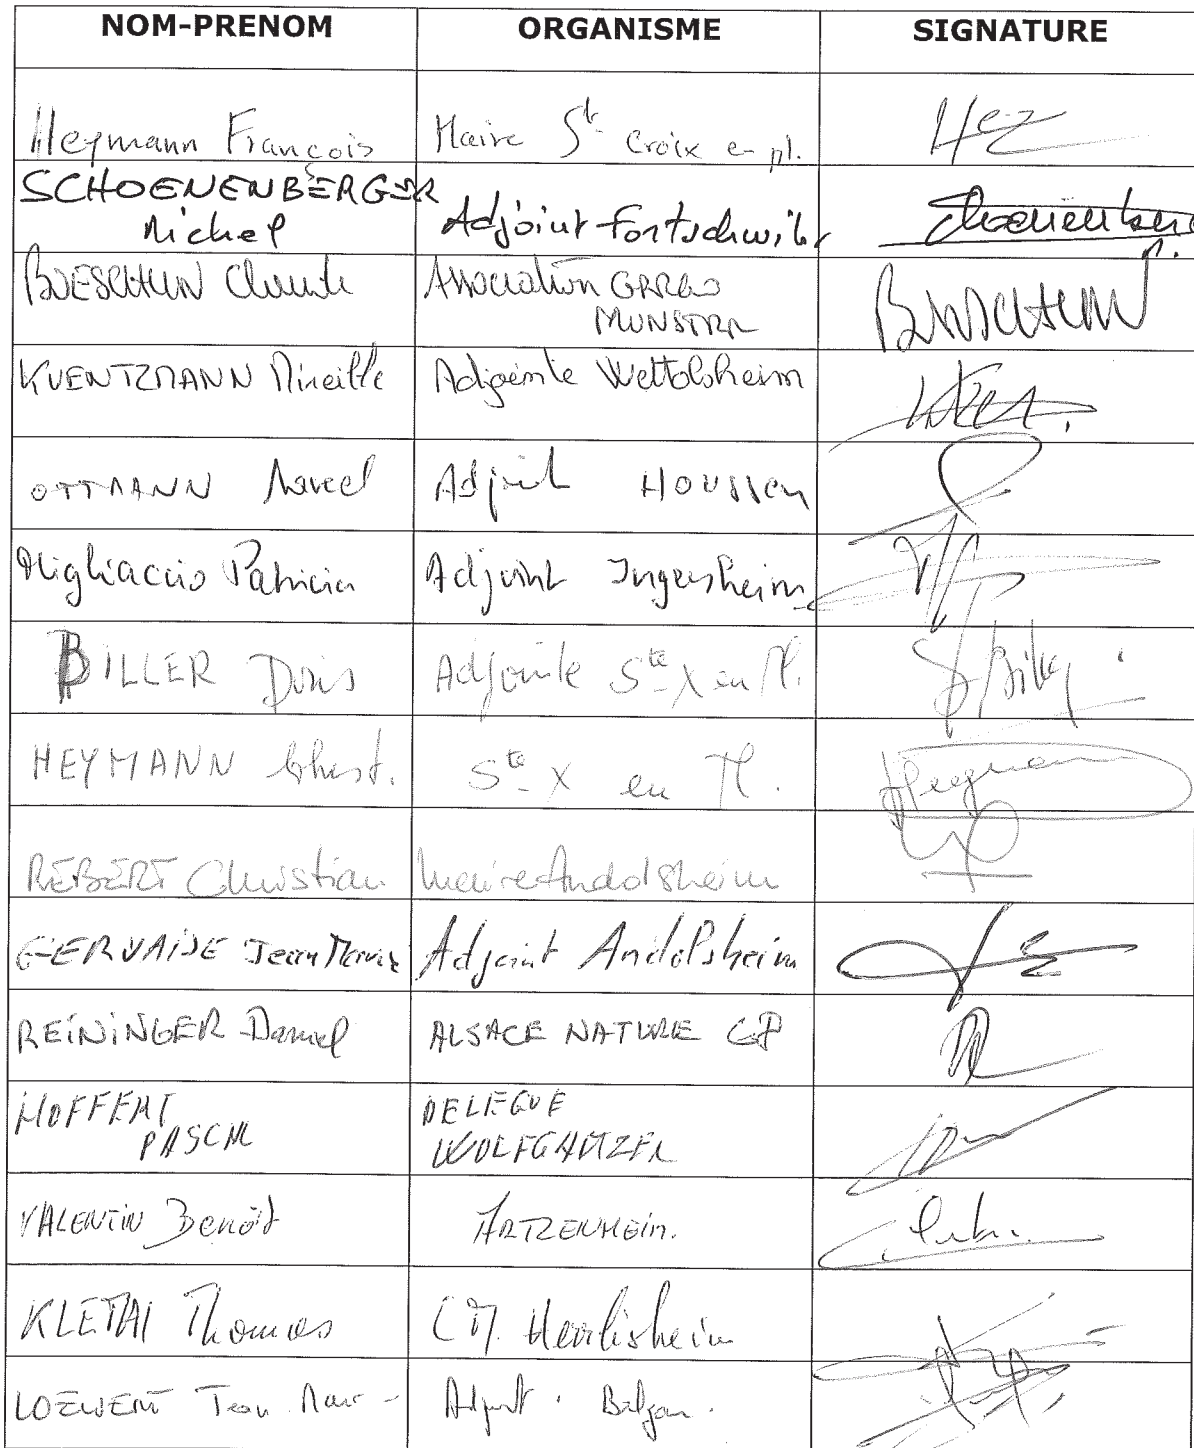 NOM-PRENOM ORGANISME SIGNATURE
Heymann François Maire Ste Croix en pl. Hez
SCHOENENBERGER
Michel Adjoint Fortschwihr
BOESCHLIN Claude Association GARGO
MUNSTER
KUENTZMANN Mireille Adjointe Wettolsheim
OTTMANN Marcel Adjoint HOUSSEN
Migliaccio Patricia Adjoint Ingersheim
BILLER Doris Adjointe Ste X en Pl.
HEYMANN Christ. Ste X en Pl. Heymann
REBERT Christian Maire Andolsheim
GERVAISE Jean Marie Adjoint Andolsheim
REININGER Daniel ALSACE NATURE
HOFFERT
PASCAL DELEGUE
WOLFGANTZEN
VALENTIN Benoît ARTZENHEIM.
KLETHI Thomas CM. Herrlisheim
LOEWERT Jean Marc Adjoint